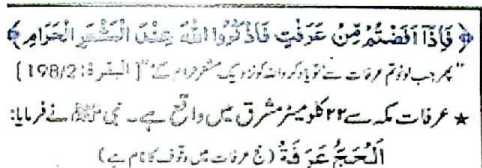 ﴿ فَإِذَآ أَفَضْتُم مِّنْ عَرَفَٰتٍ فَاذْكُرُوا اللّٰهَ عِنْدَ الْمَشْعَرِ الْحَرَامِ ﴾
"پھر جب لوٹو تم عرفات سے تو یاد کرو اللہ کو نزدیک مشعر حرام کے" [البقرة: 198/2]
★ عرفات مکہ سے ۲۲ کلومیٹر مشرق میں واقع ہے۔ نبی ﷺ نے فرمایا:
اَلْحَجُّ عَرَفَةُ (حج عرفات میں وقوف کا نام ہے)